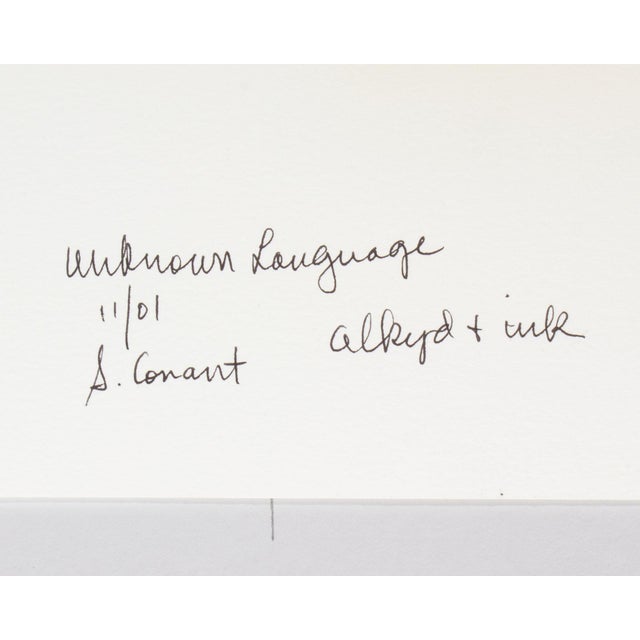 unknown Language
11/01
S. Conant
alkyd + ink